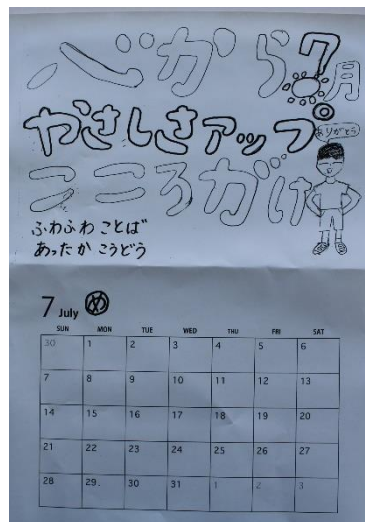 心から 7月
やさしさアップ
ありがとう
こころがけ
ふわふわ ことば
あったか こうどう
7 July
SUN MON TUE WED THU FRI SAT
30 1 2 3 4 5 6
7 8 9 10 11 12 13
14 15 16 17 18 19 20
21 22 23 24 25 26 27
28 29 30 31 1 2 3